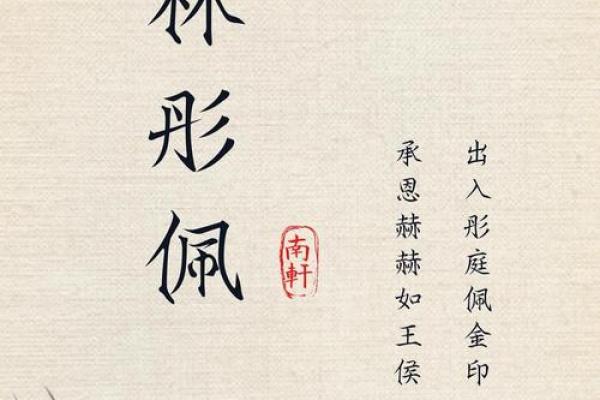 出入彤庭佩金印
承恩赫赫如王侯
南軒
林彤佩